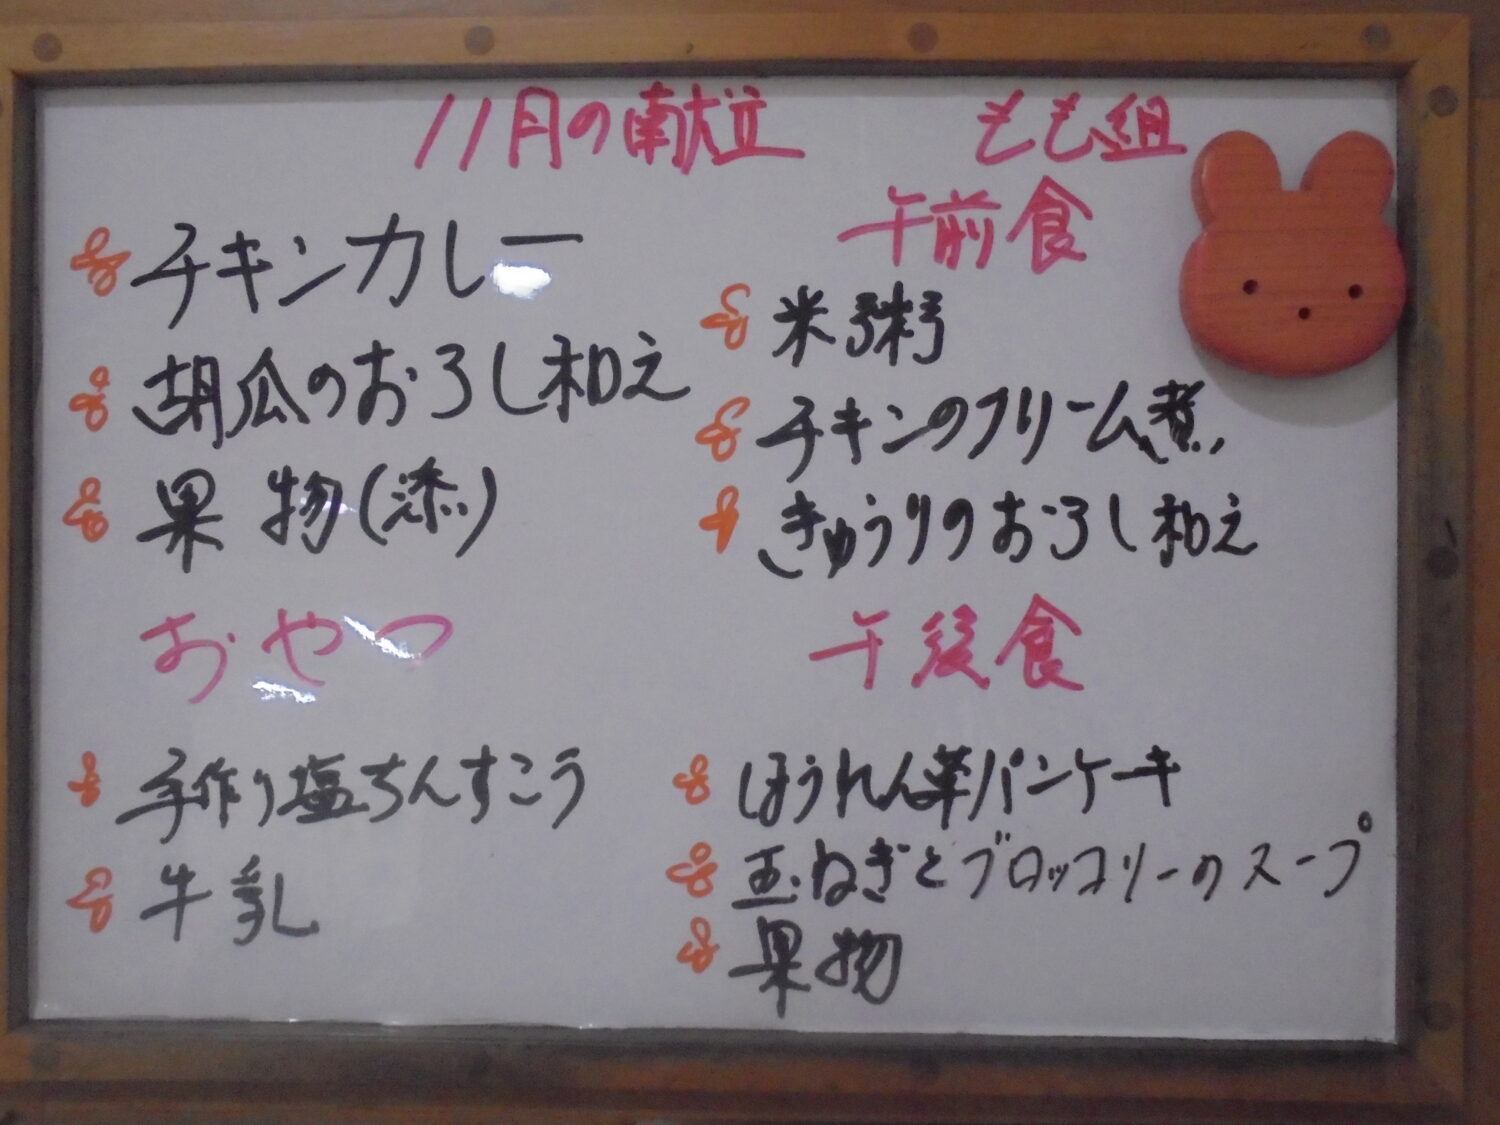 11月の献立
チキンカレー
胡瓜のおろし和え
果物(添)
おやつ
手作り塩ちんすこう
牛乳
もも組
午前食
米粥
チキンのクリーム煮
きゅうりのおろし和え
午後食
ほうれん草パンケーキ
玉ねぎとブロッコリーのスープ
果物